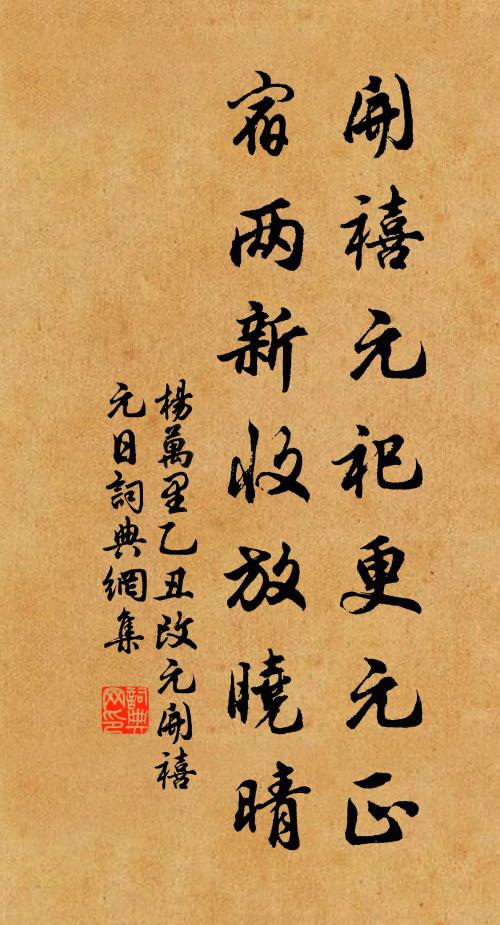 開禧元祀更元正
宿两新收放曉晴
楊萬里乙丑改元開禧
元日詞典網集
詞典网印